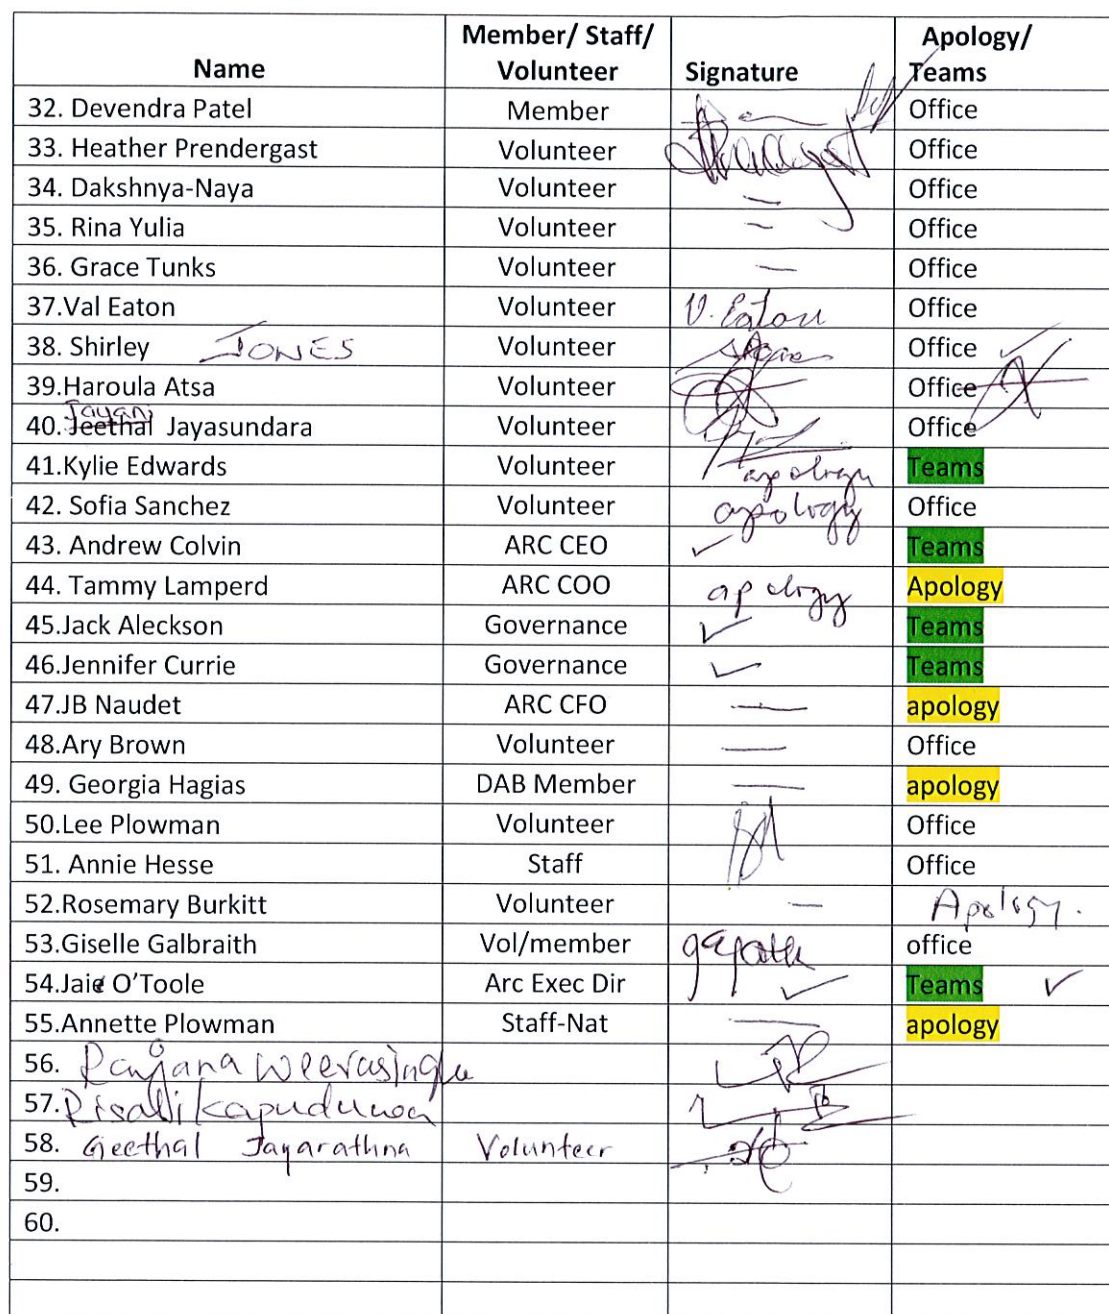 Name Member/ Staff/ Volunteer Signature Apology/ Teams
32. Devendra Patel Member — Office
33. Heather Prendergast Volunteer Office
34. Dakshnya-Naya Volunteer — Office
35. Rina Yulia Volunteer — Office
36. Grace Tunks Volunteer — Office
37.Val Eaton Volunteer V. Eaton Office
38. Shirley JONES Volunteer Office ✓
39.Haroula Atsa Volunteer Office
40. Jayani Jeethal Jayasundara Volunteer Office
41.Kylie Edwards Volunteer apology Teams
42. Sofia Sanchez Volunteer apology Office
43. Andrew Colvin ARC CEO ✓ Teams
44. Tammy Lamperd ARC COO apology Apology
45.Jack Aleckson Governance ✓ Teams
46.Jennifer Currie Governance ✓ Teams
47.JB Naudet ARC CFO — apology
48.Ary Brown Volunteer — Office
49. Georgia Hagias DAB Member — apology
50.Lee Plowman Volunteer Office
51. Annie Hesse Staff Office
52.Rosemary Burkitt Volunteer — Apology.
53.Giselle Galbraith Vol/member office
54.Jaie O'Toole Arc Exec Dir ✓ Teams ✓
55.Annette Plowman Staff-Nat — apology
56.
57.
58. Geethal Jayarathna Volunteer
59.
60.